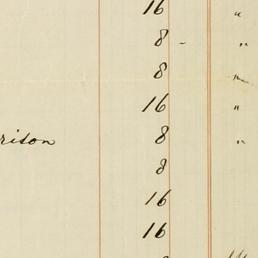 16 "
8 - "
8
16 "
8 "
8
16
16